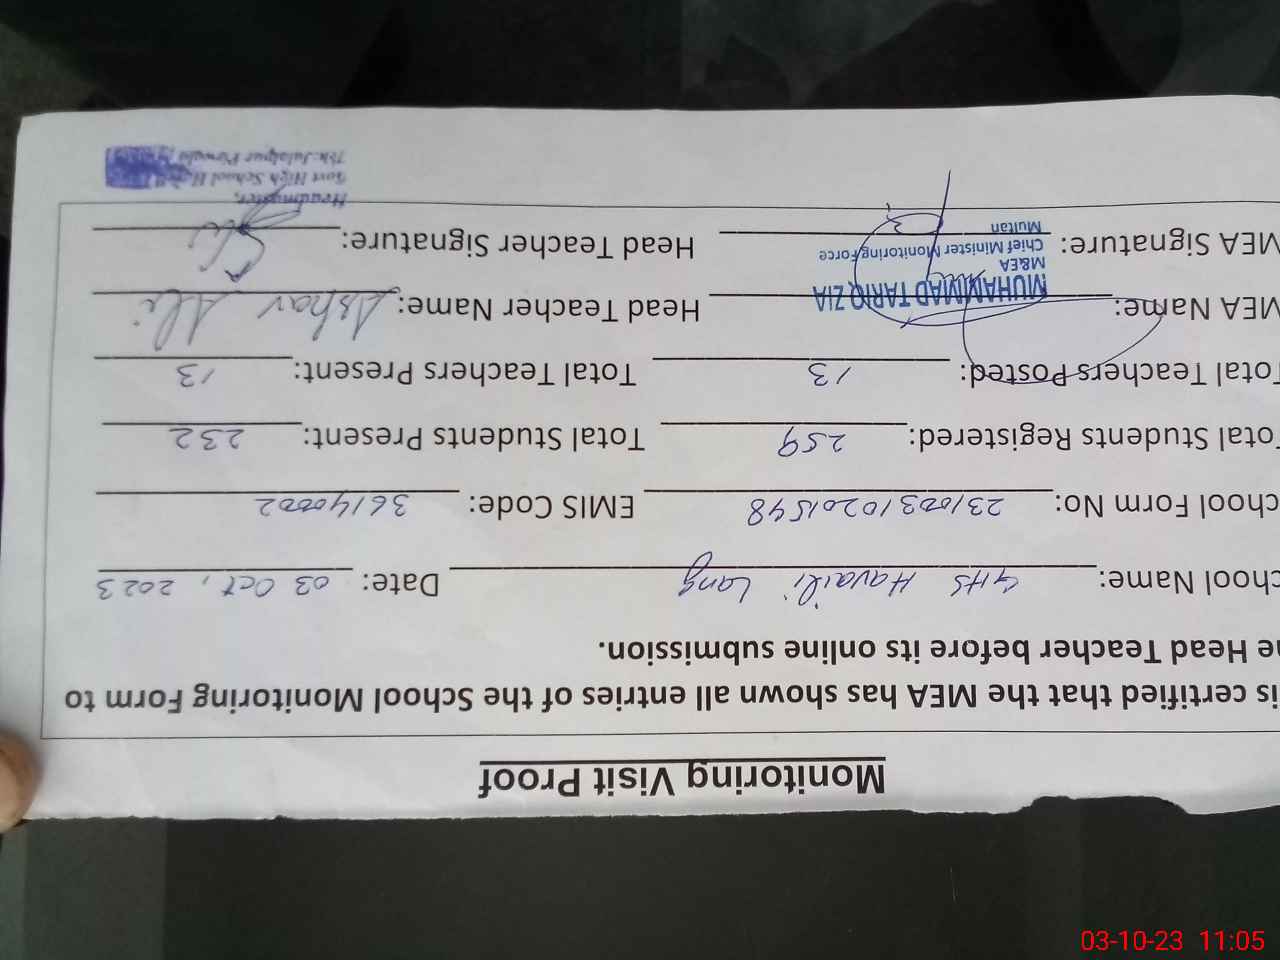 Monitoring Visit Proof
is certified that the MEA has shown all entries of the School Monitoring Form to
e Head Teacher before its online submission.
chool Name: GHS Havaili Lang Date: 03 Oct, 2023
chool Form No: EMIS Code:
Total Students Registered: 259 Total Students Present: 232
Total Teachers Posted: 13 Total Teachers Present: 13
MEA Name: MUHAMMAD TARIQ ZIA Head Teacher Name: Ali
M&EA
Chief Minister Monitoring Force
MEA Signature: Multan Head Teacher Signature:
Headmaster,
Govt High School
Jalalpur Pirwala
03-10-23 11:05